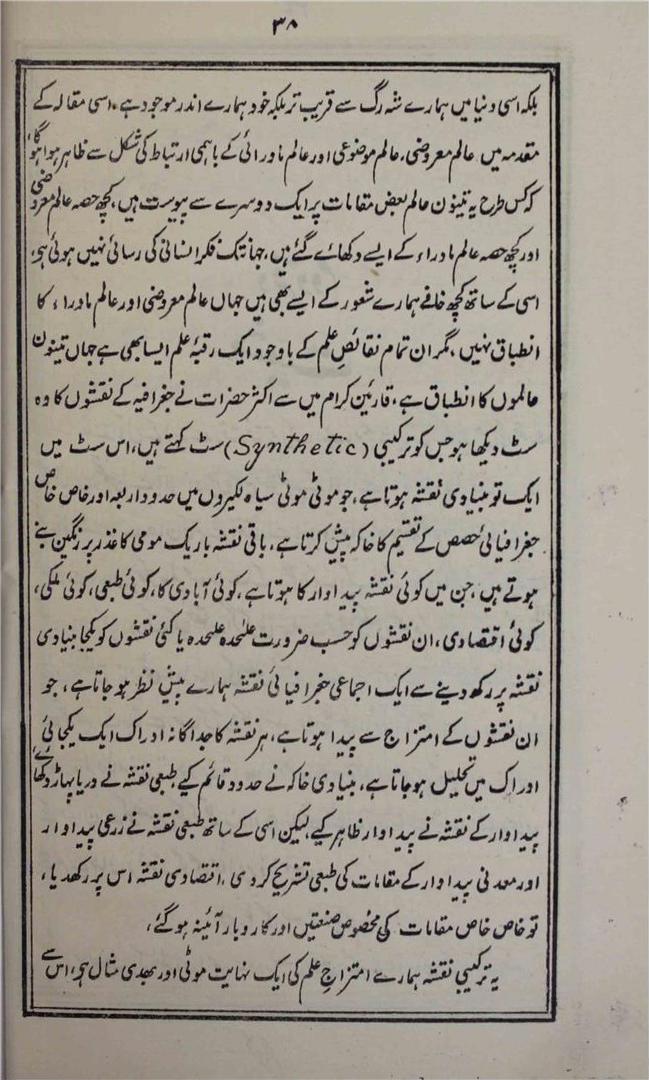 ۳۸
بلکہ اسی دنیا میں ہمارے شہ رگ سے قریب تر بلکہ خود ہمارے اندر موجود ہے، اسی مقالہ کے
مقدمہ میں عالم معروضی، عالم موضوعی اور عالم ماورائی کے باہمی ارتباط کی شکل سے ظاہر ہوا ہوگا،
کہ کس طرح یہ تینون عالم بعض مقامات پر ایک دوسرے سے پیوست ہیں، کچھ حصہ عالم معروضی
اور کچھ حصہ عالم ماوراء کے ایسے دکھائے گئے ہیں، جہانتک فکر انسانی کی رسائی نہیں ہوئی ہی،
اسی کے ساتھ کچھ خاقے ہمارے شعور کے ایسے بھی ہیں جہاں عالم معروضی اور عالم ماوراء کا
انطباق نہیں، مگر ان تمام نقائص علم کے باوجود ایک رقبۂ علم ایسا بھی ہے جہاں تینون
عالموں کا انطباق ہے، قارئین کرام میں سے اکثر حضرات نے جغرافیہ کے نقشوں کا وہ
سٹ دیکھا ہو جس کو ترکیبی (Synthetic) سٹ کہتے ہیں، اس سٹ میں
ایک تو بنیادی نقشہ ہوتا ہے، جو موٹی موٹی سیاہ لکیروں میں حدود اربعہ اور خاص خاص
جغرافیائی حصص کے تقسیم کا خاکہ پیش کرتا ہے، باقی نقشہ باریک مومی کاغذ پر رنگین بنے
ہوتے ہیں، جن میں کوئی نقشہ پیداوار کا ہوتا ہے، کوئی آبادی کا، کوئی طبعی، کوئی ملکی،
کوئی اقتصادی، ان نقشوں کو حسب ضرورت علٰحدہ علٰحدہ یا کئی نقشوں کو یکجا بنیادی
نقشہ پر رکھ دینے سے ایک اجماعی جغرافیائی نقشہ ہمارے پیش نظر ہو جاتا ہے، جو
ان نقشوں کے امتزاج سے پیدا ہوتا ہے، ہر نقشہ کا جداگانہ ادراک ایک یکجائی
ادراک میں تحلیل ہو جاتا ہے، بنیادی خاکہ نے حدود قائم کیے طبعی نقشہ نے دریا پہاڑ دکھائے،
پیداوار کے نقشہ نے پیداوار ظاہر کیے لیکن اسی کے ساتھ طبعی نقشہ نے زرعی پیداوار
اور معدنی پیداوار کے مقامات کی طبعی تشریح کر دی، اقتصادی نقشہ اس پر رکھدیا،
تو خاص خاص مقامات کی مخصوص صنعتیں اور کاروبار آئینہ ہو گئے،
یہ ترکیبی نقشہ ہمارے امتزاج علم کی ایک نہایت موٹی اور بھدی مثال ہی، اس سے